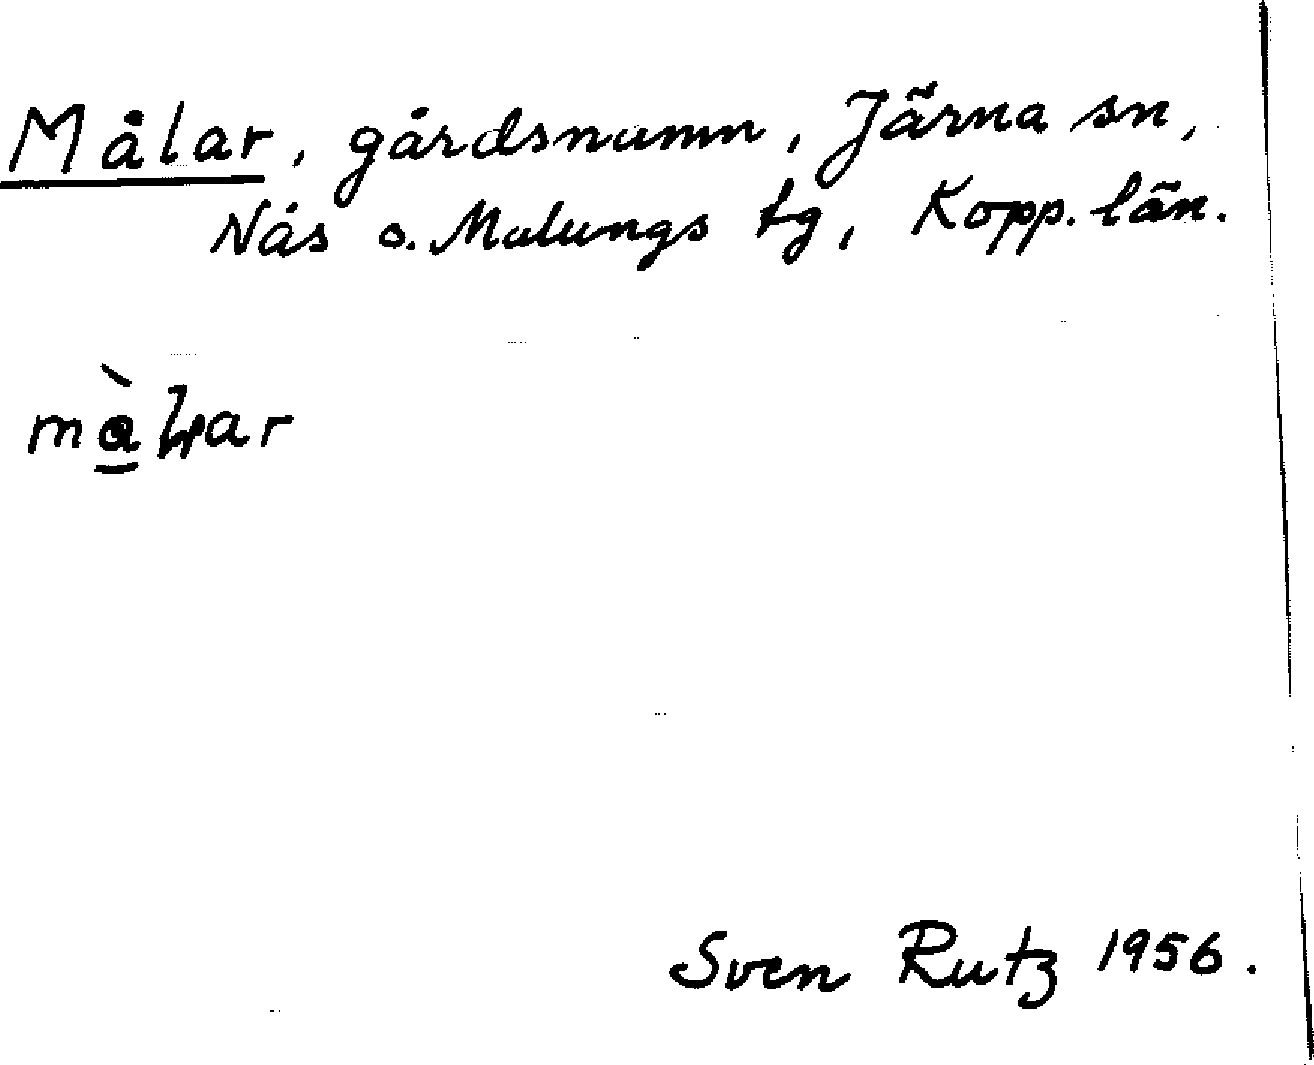 Målar, gårdsnamn, Järna sn,
Nås o. Malungs tg, Kopp. län.
Sven Rutz 1956.